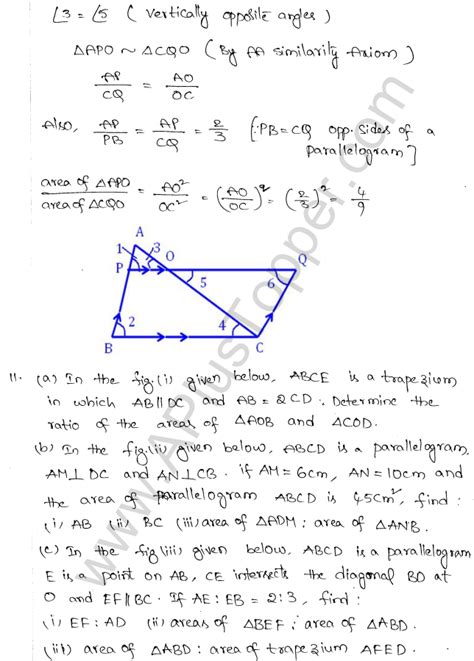 ∠3 = ∠5 ( vertically opposite angles )
△APO ~ △CQO ( By AA similarity Axiom )
AP/CQ = AO/OC
Also, AP/PB = AP/CQ = 2/3 [∵PB=CQ opp. sides of a
parallelogram]
area of △APO / area of △CQO = AO²/OC² = (AO/OC)² = (2/3)² = 4/9
A
1 3 O Q
P 5 6
2 4
B C
11. (a) In the fig.(i) given below, ABCE is a trapezium
in which AB∥DC and AB = 2CD. Determine the
ratio of the areas of △AOB and △COD.
(b) In the fig.(ii) given below, ABCD is a parallelogram,
AM⊥DC and AN⊥CB. if AM = 6cm, AN = 10cm and
the area of parallelogram ABCD is 45cm², find :
(i) AB (ii) BC (iii) area of △ADM : area of △ANB.
(c) In the fig(iii) given below, ABCD is a parallelogram
E is a point on AB, CE intersects the diagonal BD at
O and EF∥BC. If AE : EB = 2:3, find :
(i) EF : AD (ii) areas of △BEF : area of △ABD.
(iii) area of △ABD : area of trapezium AFED.
www.APlusTopper.com